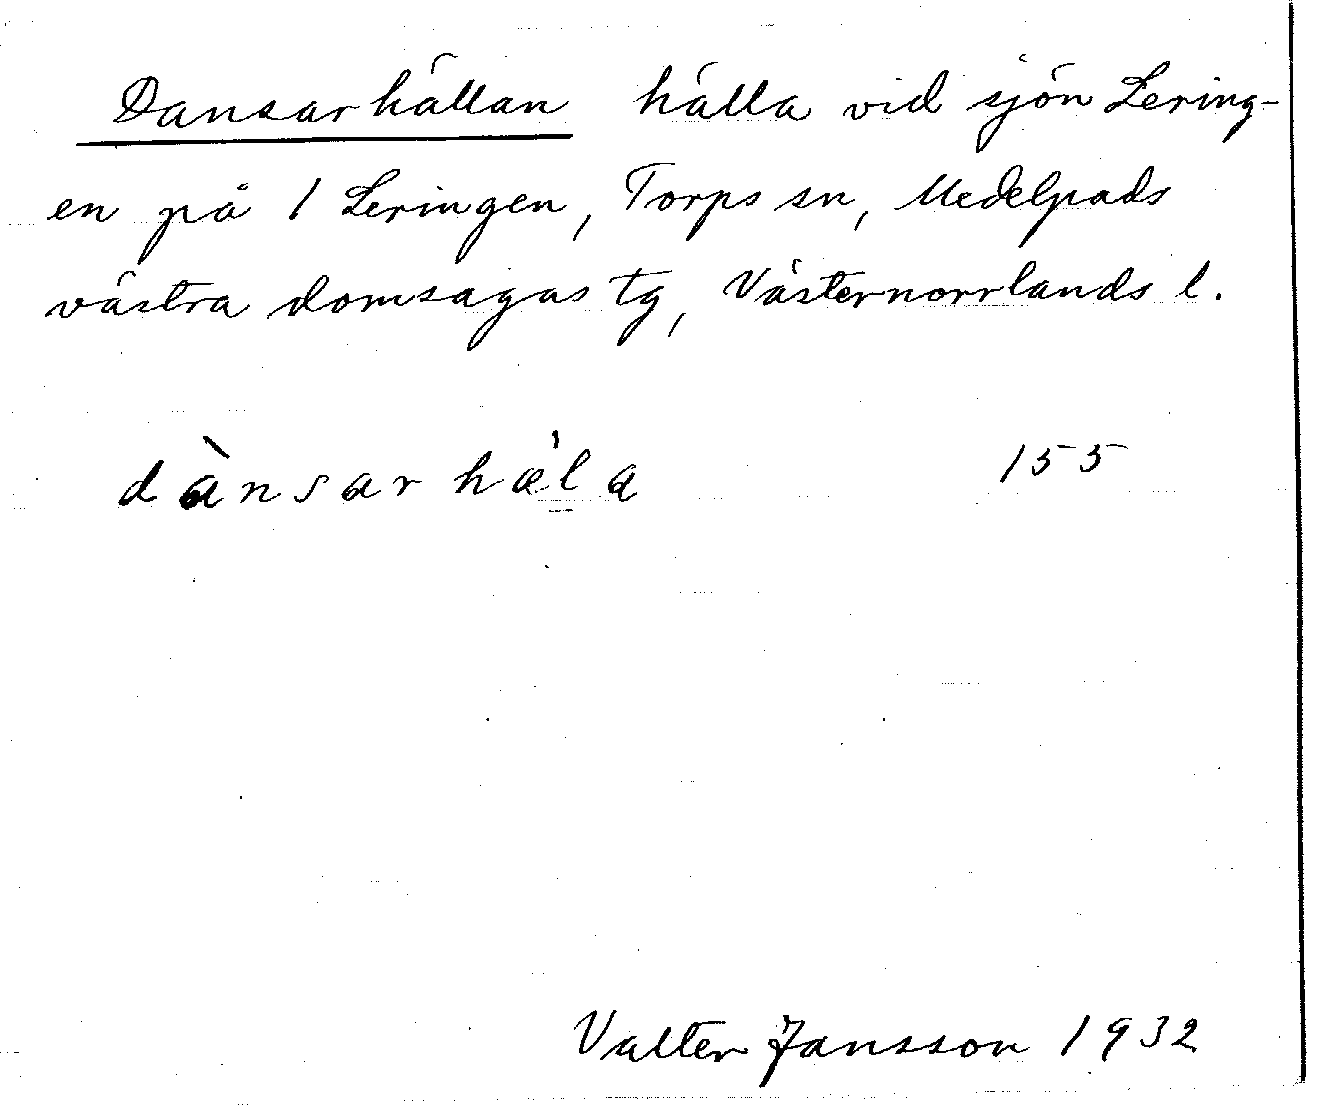 Dansarhällan hälla vid sjön Lering-
en på 1 Leringen, Torps sn, Medelpads
västra domsagas tg, Västernorrlands l.
dànsarhæ̍la 155
Valter Jansson 1932